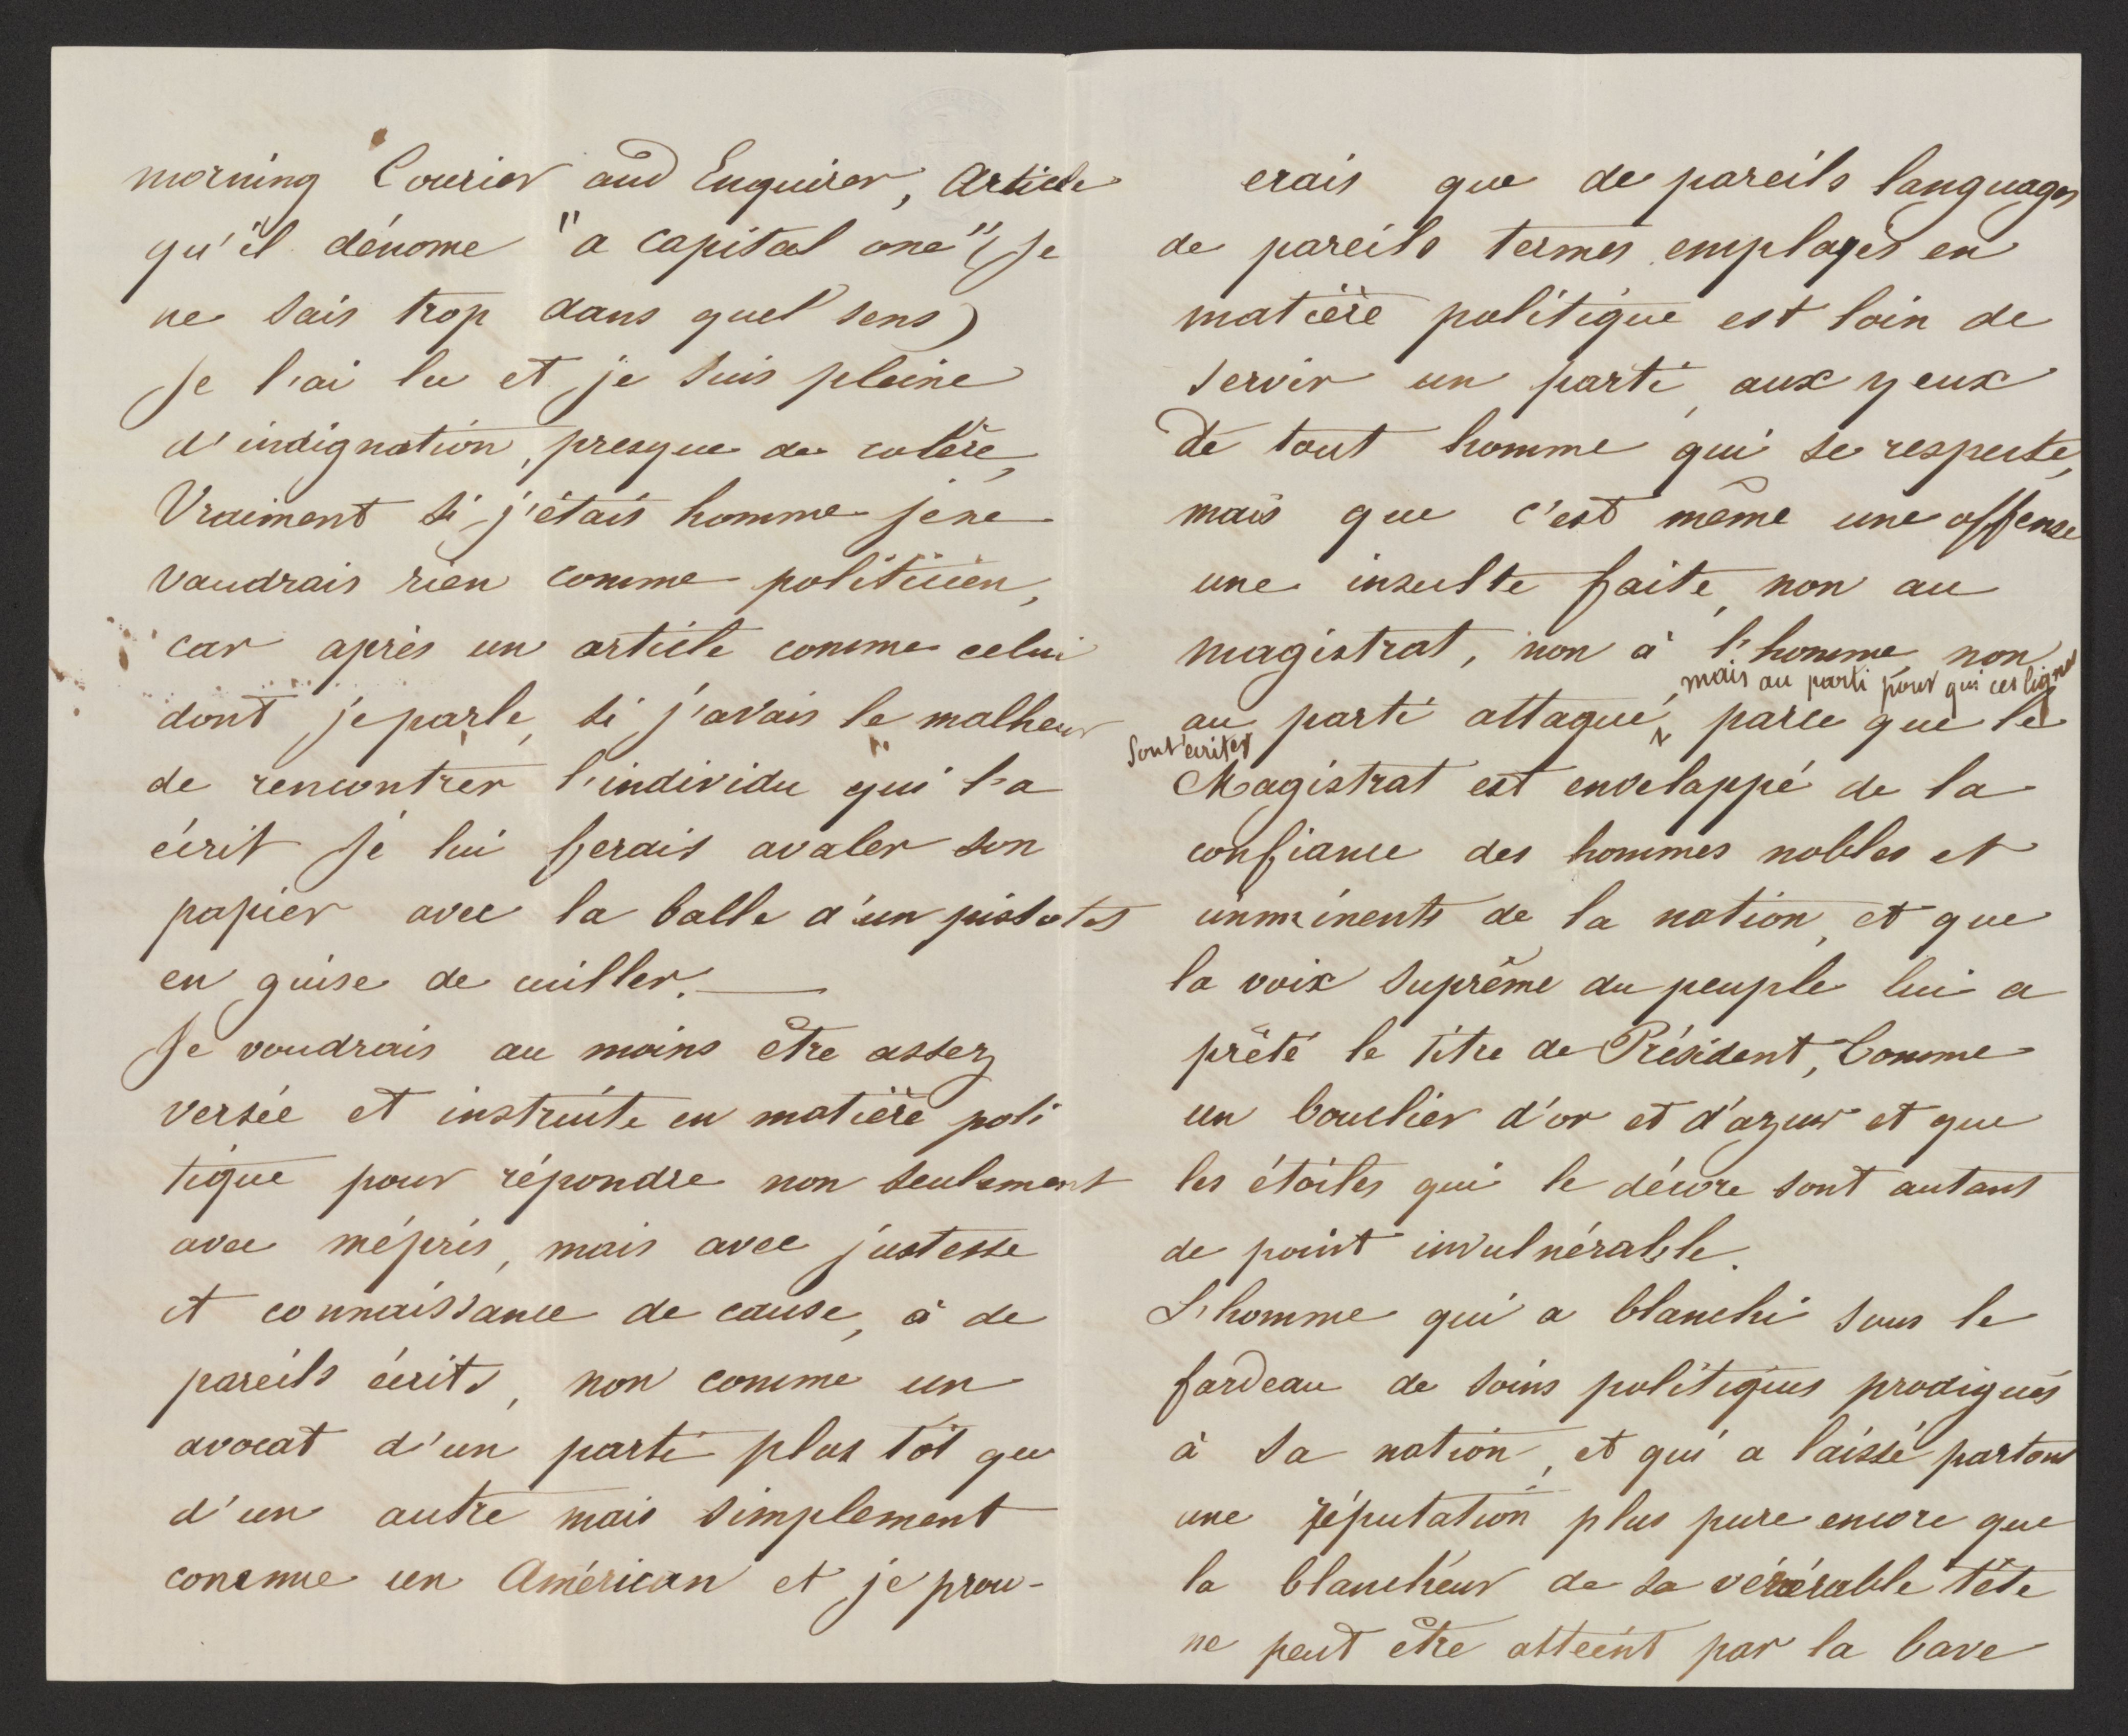 morning Courier and Enquirer, Article
qu'il dénome "a capital one" (Je
ne sais trop dans quel sens)
Je l'ai lu et je suis pleine
d'indignation, presque de colère,
Vraiment si j'étais homme je ne
vaudrais rien comme politicien,
car après un article comme celui
dont je parle, si j'avais le malheur
de rencontrer l'individu qui l'a
écrit Je lui ferais avaler son
papier avec la balle d'un pistolet
en guise de cuiller.—
Je voudrais au moins être assez
versée et instruite en matière poli
tique pour répondre non seulement
avec mépris, mais avec justesse
et connaissance de cause, à de
pareils écrits, non comme un
avocat d'un parti plus tôt que
d'un autre mais simplement
comme un Américan et je prou-
erais que de pareils languages
de pareils termes employés en
matière politique est loin de
servir un parti, aux yeux
De tout homme qui se respecte,
mais que c'est même une offense
une insulte faite, non au
magistrat, non à l'homme, non
au parti attaqué, mais au parti pour qui ces lignes
sont écrites parce que le
Magistrat est envelappé de la
confiance des hommes nobles et
imminents de la nation, et que
la voix suprême du peuple lui a
prêté le titre de Président, Comme
un bouclier d'or et d'azur et que
les étoiles qui le décore sont autant
de point invulnérable.
L'homme qui a blanchi sous le
fardeau de soins politiques prodigués
à sa nation, et qui a laissé partout
une réputation plus pure encore que
la blancheur de sa vénérable tête
ne peut être atteint par la bave